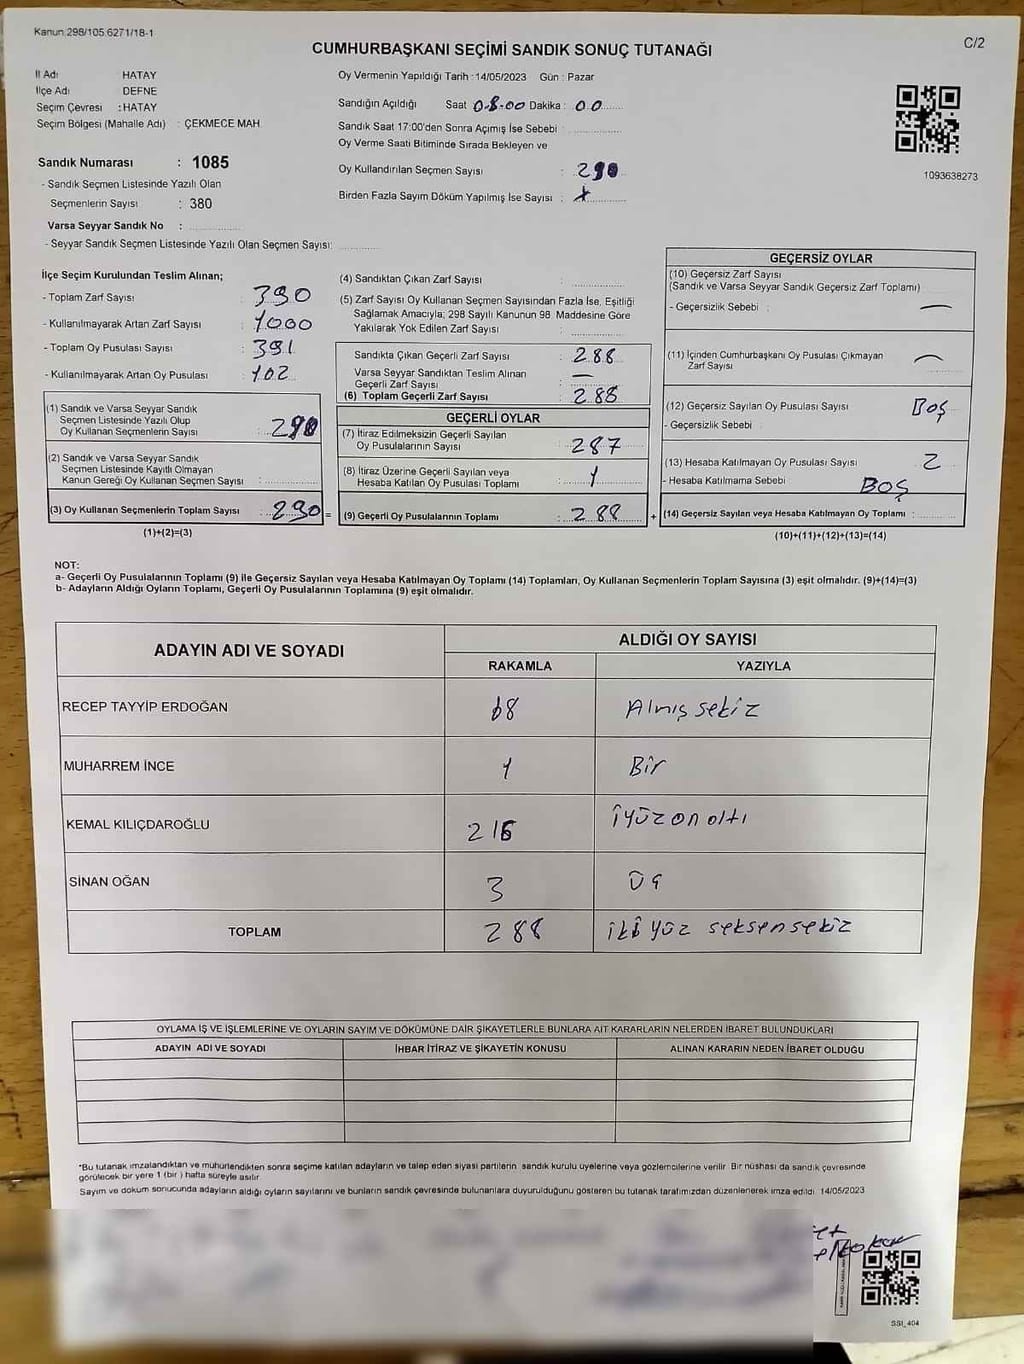 Kanun.298/105.6271/18-1
C/2
CUMHURBAŞKANI SEÇİMİ SANDIK SONUÇ TUTANAĞI
İl Adı : HATAY
İlçe Adı DEFNE
Seçim Çevresi : HATAY
Seçim Bölgesi (Mahalle Adı) : ÇEKMECE MAH.
Sandık Numarası : 1085
- Sandık Seçmen Listesinde Yazılı Olan
Seçmenlerin Sayısı : 380
Varsa Seyyar Sandık No :
- Seyyar Sandık Seçmen Listesinde Yazılı Olan Seçmen Sayısı:
Oy Vermenin Yapıldığı Tarih : 14/05/2023 Gün : Pazar
Sandığın Açıldığı Saat 08.00 Dakika : 00
Sandık Saat 17:00'den Sonra Açılmış İse Sebebi :
Oy Verme Saati Bitiminde Sırada Bekleyen ve
Oy Kullandırılan Seçmen Sayısı : 290
Birden Fazla Sayım Döküm Yapılmış İse Sayısı :
1093638273
İlçe Seçim Kurulundan Teslim Alınan;
- Toplam Zarf Sayısı : 390
- Kullanılmayarak Artan Zarf Sayısı : 1000
- Toplam Oy Pusulası Sayısı : 391
- Kullanılmayarak Artan Oy Pusulası : 102
(1) Sandık ve Varsa Seyyar Sandık
Seçmen Listesinde Yazılı Olup
Oy Kullanan Seçmenlerin Sayısı : 290
(2) Sandık ve Varsa Seyyar Sandık
Seçmen Listesinde Kayıtlı Olmayan
Kanun Gereği Oy Kullanan Seçmen Sayısı :
(3) Oy Kullanan Seçmenlerin Toplam Sayısı : 290 =
(1)+(2)=(3)
(4) Sandıktan Çıkan Zarf Sayısı :
(5) Zarf Sayısı Oy Kullanan Seçmen Sayısından Fazla İse, Eşitliği
Sağlamak Amacıyla; 298 Sayılı Kanunun 98. Maddesine Göre
Yakılarak Yok Edilen Zarf Sayısı :
Sandıkta Çıkan Geçerli Zarf Sayısı : 288
Varsa Seyyar Sandıktan Teslim Alınan
Geçerli Zarf Sayısı : —
(6) Toplam Geçerli Zarf Sayısı : 288
GEÇERLİ OYLAR
(7) İtiraz Edilmeksizin Geçerli Sayılan
Oy Pusulalarının Sayısı : 287
(8) İtiraz Üzerine Geçerli Sayılan veya
Hesaba Katılan Oy Pusulası Toplamı : 1
(9) Geçerli Oy Pusulalarının Toplamı : 288 +
GEÇERSİZ OYLAR
(10) Geçersiz Zarf Sayısı
(Sandık ve Varsa Seyyar Sandık Geçersiz Zarf Toplamı)
- Geçersizlik Sebebi : —
(11) İçinden Cumhurbaşkanı Oy Pusulası Çıkmayan
Zarf Sayısı —
(12) Geçersiz Sayılan Oy Pusulası Sayısı BOŞ
- Geçersizlik Sebebi :
(13) Hesaba Katılmayan Oy Pusulası Sayısı 2
- Hesaba Katılmama Sebebi BOŞ
(14) Geçersiz Sayılan veya Hesaba Katılmayan Oy Toplamı :
(10)+(11)+(12)+(13)=(14)
NOT:
a- Geçerli Oy Pusulalarının Toplamı (9) ile Geçersiz Sayılan veya Hesaba Katılmayan Oy Toplamı (14) Toplamları, Oy Kullanan Seçmenlerin Toplam Sayısına (3) eşit olmalıdır. (9)+(14)=(3)
b- Adayların Aldığı Oyların Toplamı, Geçerli Oy Pusulalarının Toplamına (9) eşit olmalıdır.
ADAYIN ADI VE SOYADI ALDIĞI OY SAYISI
RAKAMLA YAZIYLA
RECEP TAYYİP ERDOĞAN 68 Almış sekiz
MUHARREM İNCE 1 Bir
KEMAL KILIÇDAROĞLU 216 iyüzonaltı
SİNAN OĞAN 3 Üç
TOPLAM 288 iki yüz seksensekiz
OYLAMA İŞ VE İŞLEMLERİNE VE OYLARIN SAYIM VE DÖKÜMÜNE DAİR ŞİKAYETLERLE BUNLARA AİT KARARLARIN NELERDEN İBARET BULUNDUKLARI
ADAYIN ADI VE SOYADI İHBAR İTİRAZ VE ŞİKAYETİN KONUSU ALINAN KARARIN NEDEN İBARET OLDUĞU
*Bu tutanak imzalandıktan ve mühürlendikten sonra seçime katılan adayların ve talep eden siyasi partilerin sandık kurulu üyelerine veya gözlemcilerine verilir. Bir nüshası da sandık çevresinde
görülecek bir yere 1 (bir) hafta süreyle asılır.
Sayım ve döküm sonucunda adayların aldığı oyların sayılarını ve bunların sandık çevresinde bulunanlara duyurulduğunu gösteren bu tutanak tarafımızdan düzenlenerek imza edildi. 14/05/2023
SSI_404